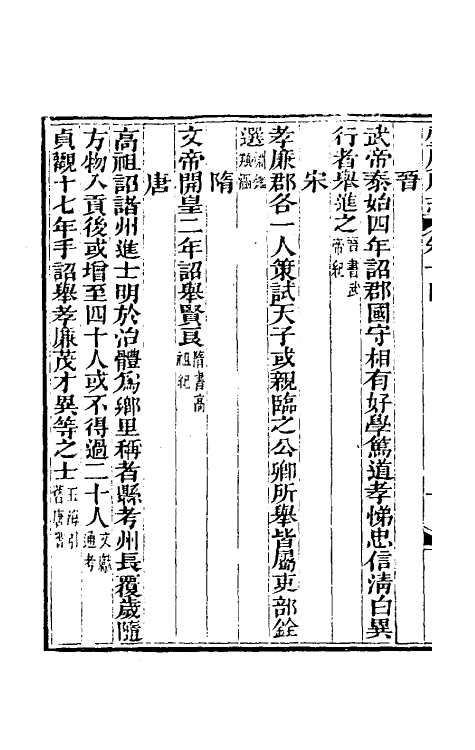 晉
武帝泰始四年詔郡國守相有好學篤道孝悌忠信淸白異
行者舉進之晉書武帝紀
宋
孝廉郡各一人策試天子或親臨之公卿所舉皆屬吏部銓
選
隋
文帝開皇二年詔舉賢良隋書高祖紀
唐
高祖詔諸州進士明於治體爲鄉里稱者縣考州長覆歲隨
方物入貢後或增至四十人或不得過二十人文獻通考
貞觀十七年手詔舉孝廉茂才異等之士玉海引舊唐書